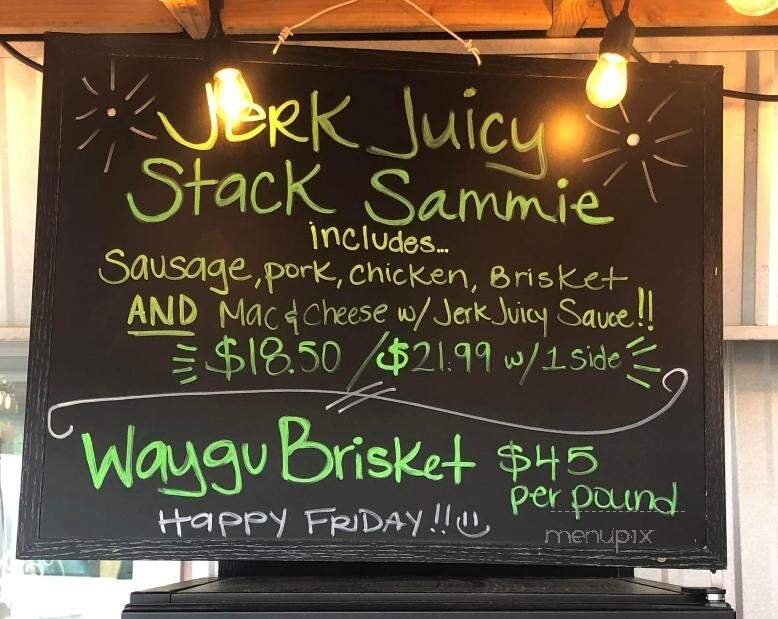 JERK JUICY
Stack Sammie
includes...
Sausage, pork, chicken, Brisket
AND Mac & Cheese w/ Jerk Juicy Sauce!!
$18.50 / $21.99 w/ 1 side
Waygu Brisket $45
per pound
HAPPY FRIDAY!!
menupix